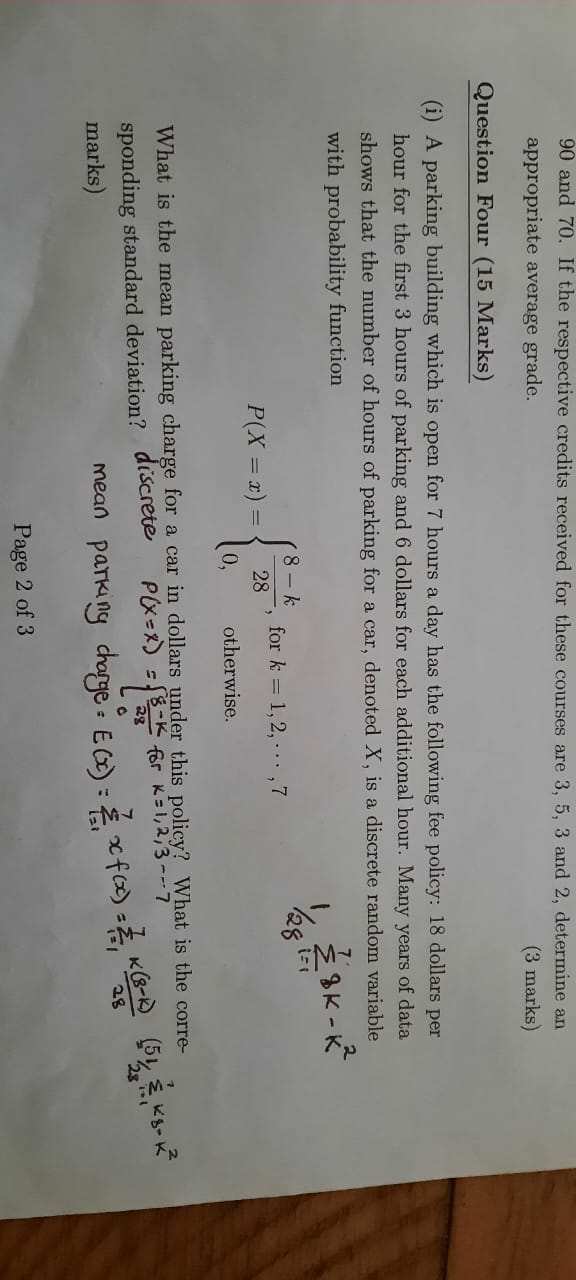 90 and 70. If the respective credits received for these courses are 3, 5, 3 and 2, determine an
appropriate average grade. (3 marks)
Question Four (15 Marks)
(i) A parking building which is open for 7 hours a day has the following fee policy: 18 dollars per
hour for the first 3 hours of parking and 6 dollars for each additional hour. Many years of data
shows that the number of hours of parking for a car, denoted X, is a discrete random variable
with probability function
1/28 7 Σ i=1 8K - K²
P(X = x) = { (8 − k)/28, for k = 1, 2, ⋯ , 7
0, otherwise.
What is the mean parking charge for a car in dollars under this policy? What is the corre-
sponding standard deviation? (5
marks)
discrete P(X=x) = { 8-K/28 for K=1,2,3---7
0
1/28 7 Σ i=1 K8-K²
mean parking charge = E(x) = 7 Σ i=1 x f(x) = 7 Σ i=1 K(8-K)/28
Page 2 of 3